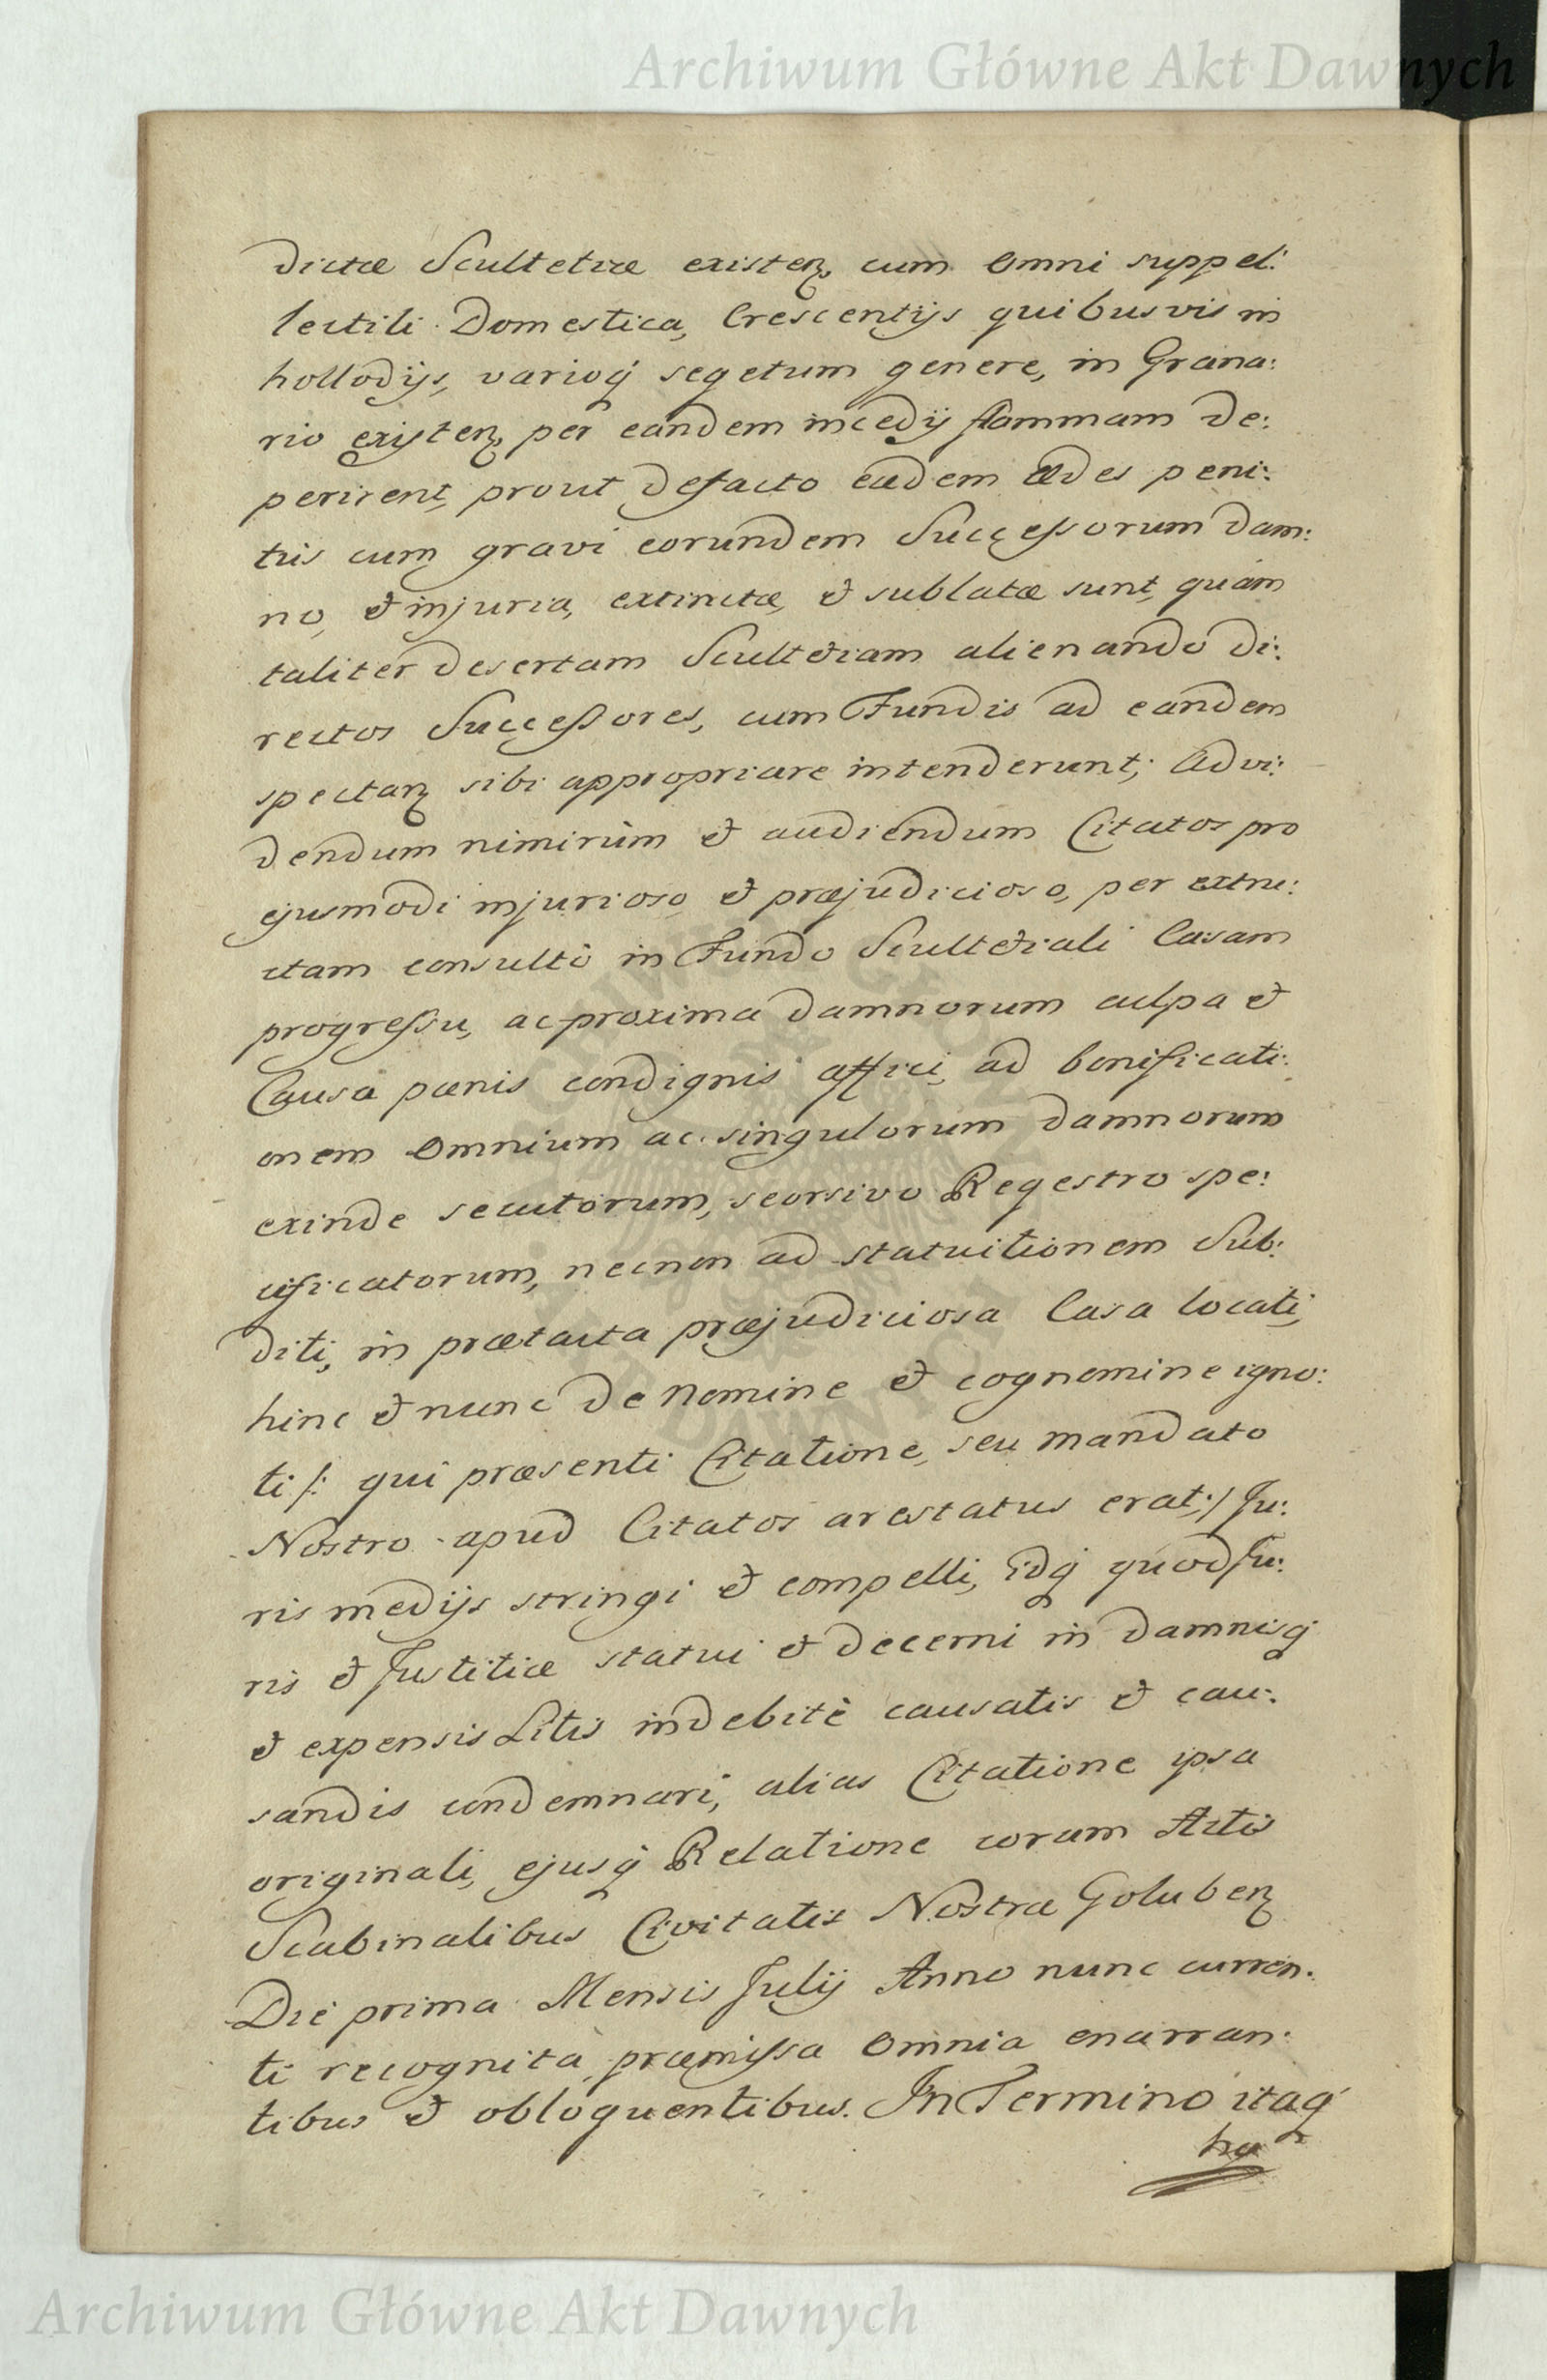 Archiwum Główne Akt Dawnych
dictæ Scultetiæ existen. cum omni suppel:
lectili Domestica, Crescentijs quibusvis in
hollodijs, varioq. segetum genere, in Grana:
rio existen. per eandem incedij flammam de:
perirent, prout defacto eædem ædes peni:
tus cum gravi eorundem Successorum dam:
no, et injuria, extinctæ, et sublatæ sunt, quam
taliter desertam Scultetiam alienando di:
rectos Successores, cum Fundis ad eandem
spectan. sibi appropriare intenderunt; Ad vi:
dendum nimirùm et audiendum Citatos pro
ejusmodi injurioso et præjudicioso, per extru:
ctam consultò in Fundo Scultetiali Casam
progressu, ac proxima damnorum culpa et
Causa pænis condignis affici, ad bonificati:
onem omnium ac singulorum damnorum
exinde secutorum, seorsivo Regestro spe:
cificatorum, necnon ad statuitionem Sub:
diti, in prætacta præjudiciosa Casa locati,
hinc et nunc de nomine et cognomine igno:
ti /: qui præsenti Citatione, seu mandato
Nostro apud Citatos arestatus erat; :/ Ju:
ris medijs stringi et compelli, idq. quod Ju:
ris et Justitiæ statui et decerni in damnisq.
et expensis Litis indebitè causatis et cau:
sandis condemnari, alias Citatione ipsa
originali, ejusq. Relatione coram Actis
Scabinalibus Civitatis Nostræ Goluben.
Die prima Mensis Julij Anno nunc curren:
ti recognita præmissa omnia enarran:
tibus et obloquentibus. In Termino itaq.
Archiwum Główne Akt Dawnych